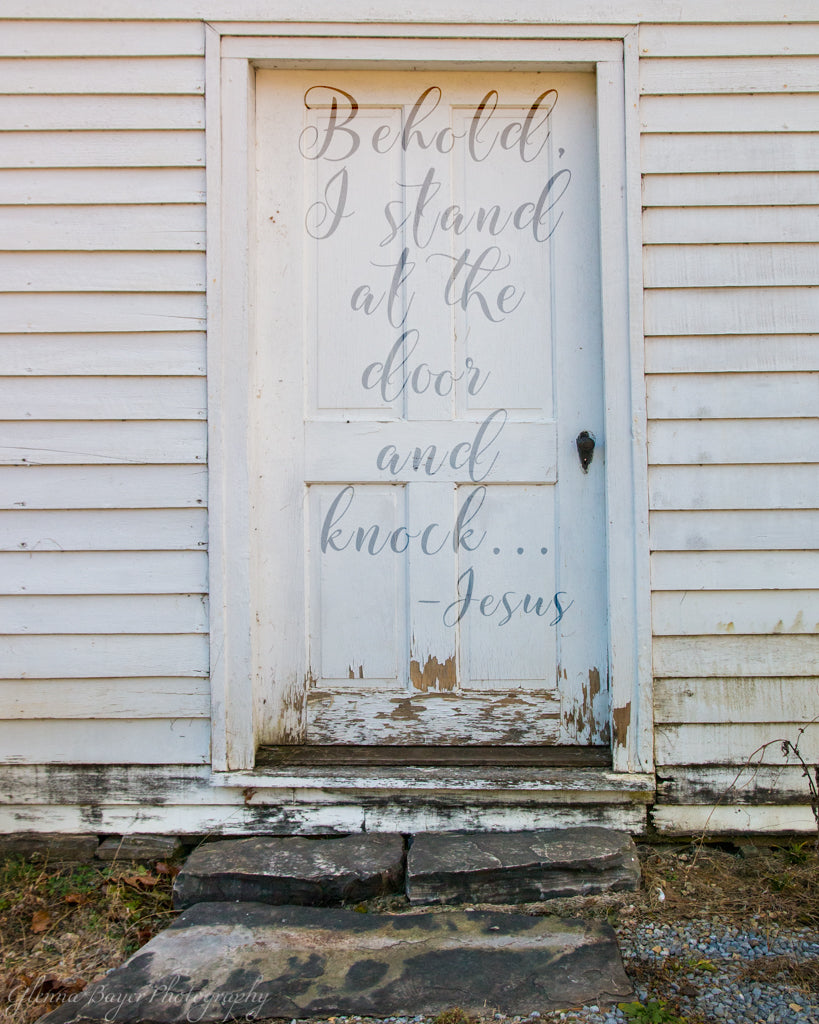 Behold,
I stand
at the
door
and
knock...
-Jesus
Glenna Bayer Photography